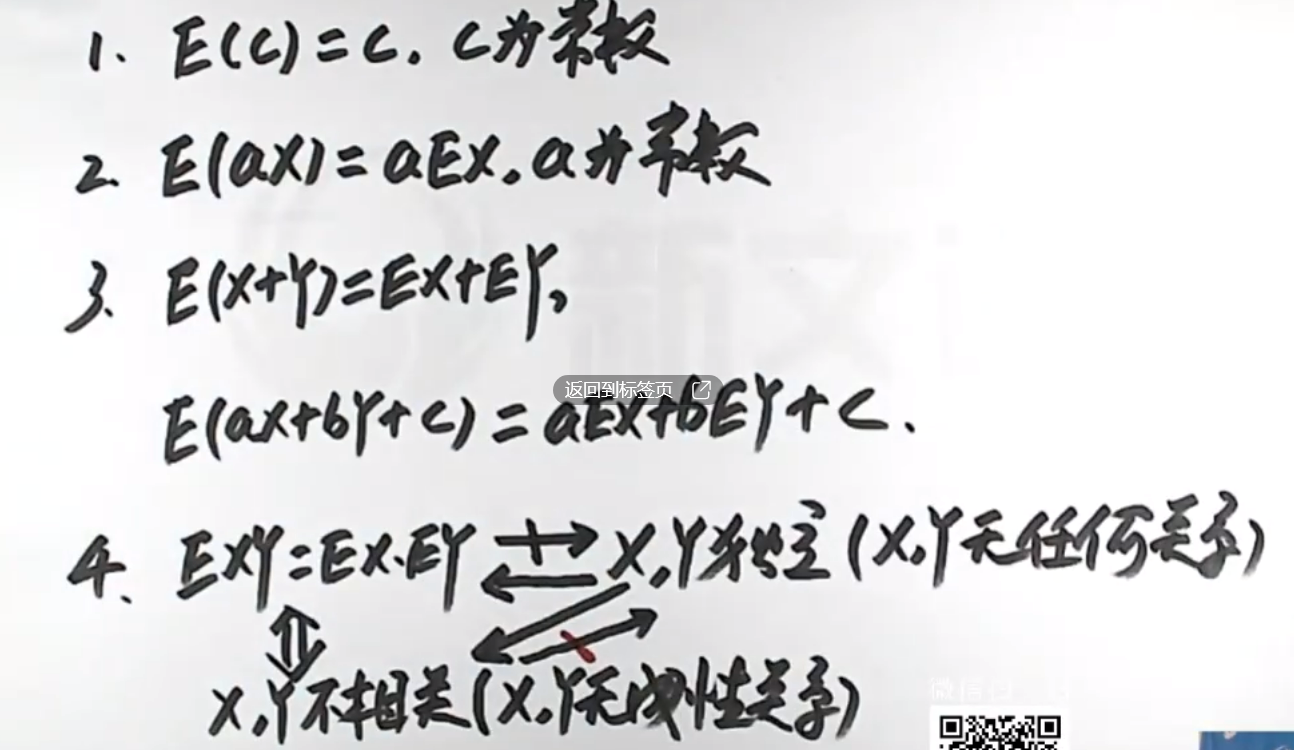 1. E(C)=C. C为常数
2. E(aX)=aEX. a为常数
3. E(X+Y)=EX+EY,
返回到标签页
E(aX+bY+C)=aEX+bEY+C.
4. EXY=EX·EY ⇸ ← X,Y独立(X,Y无任何关系)
⇕
X,Y不相关(X,Y无线性关系)